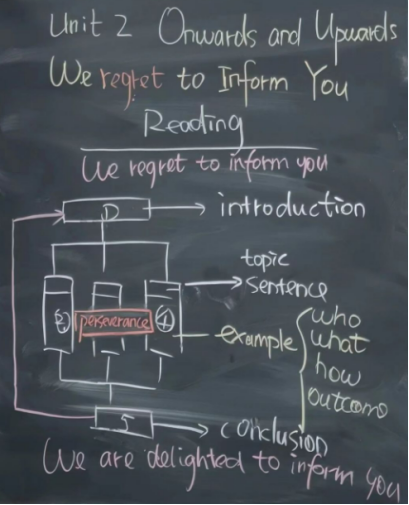 Unit 2 Onwards and Upwards
We regret to Inform You
Reading
We regret to inform you
introduction
topic
sentence
② perseverance ④
example
who
what
how
outcome
5
conclusion
We are delighted to inform you